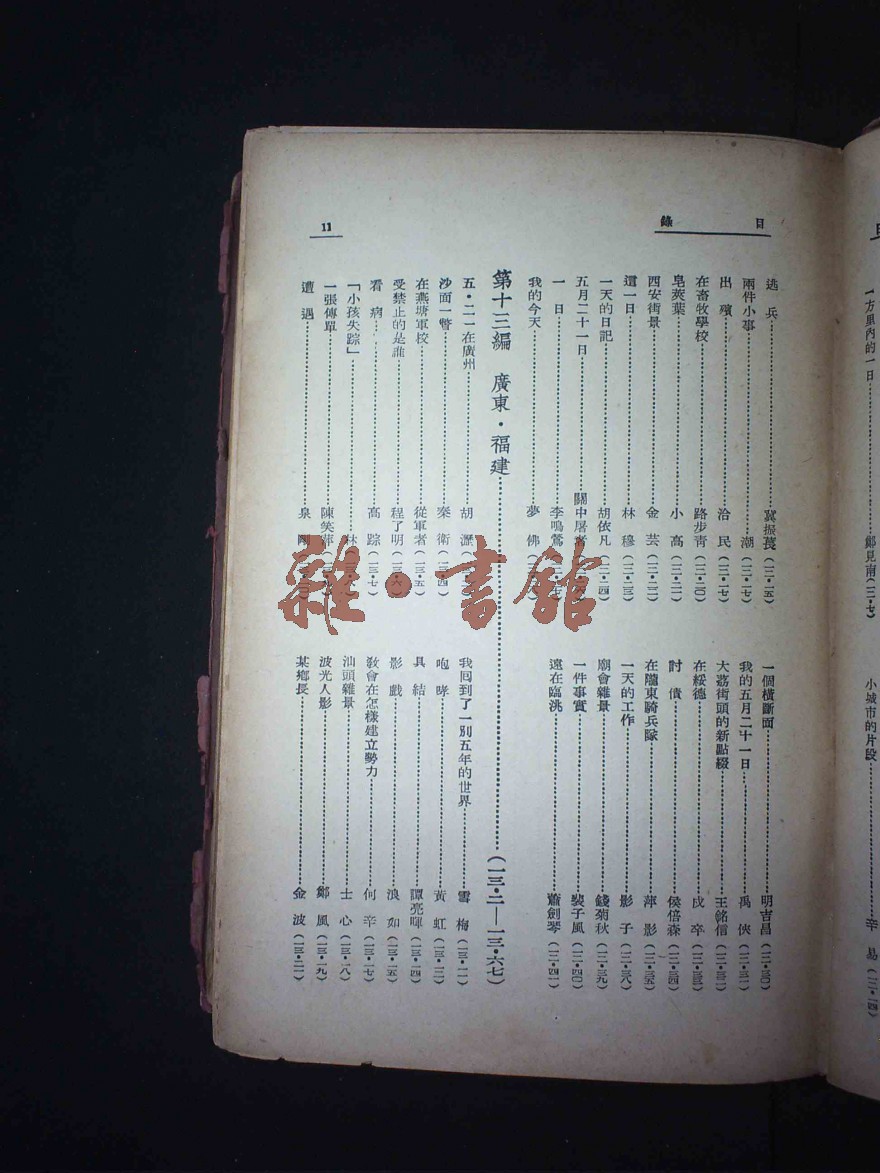 目錄
11
逃兵 冀振萇(一二·一五)
兩件小事 潮(一二·一七)
出殯 洽民(一二·一七)
在畜牧學校 路步青(一二·二〇)
皂莢葉 小高(一二·二一)
西安街景 金芸(一二·二二)
這一日 林穆(一二·二三)
一天的日記 胡依凡(一二·二四)
五月二十一日 關中屠者
一日 李鳴鶯
我的今天 夢佛
一個橫斷面 明吉昌(一二·三〇)
我的五月二十一日 禹俠(一二·三一)
大荔街頭的新點綴 王銘信(一二·三二)
在綏德 戍卒(一二·三三)
討債 侯倍森(一二·三四)
在隴東騎兵隊 萍影(一二·三五)
一天的工作 影子(一二·三八)
廟會雜景 錢菊秋(一二·三九)
一件事實 裴子風(一二·四〇)
遠在臨洮 蕭劍琴(一二·四一)
第十三編 廣東·福建(一三·二——一三·六七)
五·二一在廣州 胡瀝
沙面一瞥 秦衛(一三·四)
在燕塘軍校 從軍者(一三·五)
受禁止的是誰 程了明(一三·六)
看病 高踪(一三·七)
「小孩失踪」 林
一張傳單 陳笑萍
遭遇 泉
我囘到了一別五年的世界 雪梅(一三·一一)
咆哮 黃虹(一三·一三)
具結 譚亮暉(一三·一四)
影戲 浪如(一三·一五)
敎會在怎樣建立勢力 何辛(一三·一七)
汕頭雜景 士心(一三·一八)
波光人影 鄭風(一三·一九)
某鄉長 金波(一三·二一)
雜·書館
一方里內的一日 鄒見南(一三·七)
小城市的片段 辛易(一三·一四)